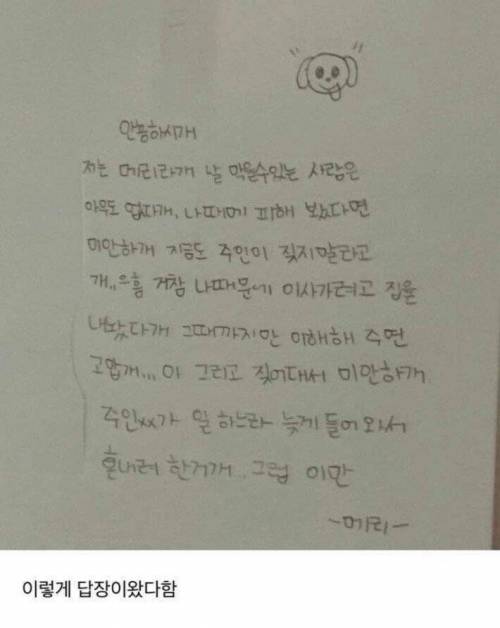 안뇽하시개
저는 메리라개 날 막을수있는 사람은
아무도 업다개, 나때메 피해 봤다면
미안하개 지금도 주인이 짖지말라고
개,,으흠 거참 나때문에 이사가려고 집을
내놨다개 그때까지만 이해해 주면
고맙개,,, 아 그리고 짖어대서 미안하개
주인xx가 일 하느라 늦게 들어와서
혼내려 한거개.. 그럼 이만
~메리~
이렇게 답장이왔다함